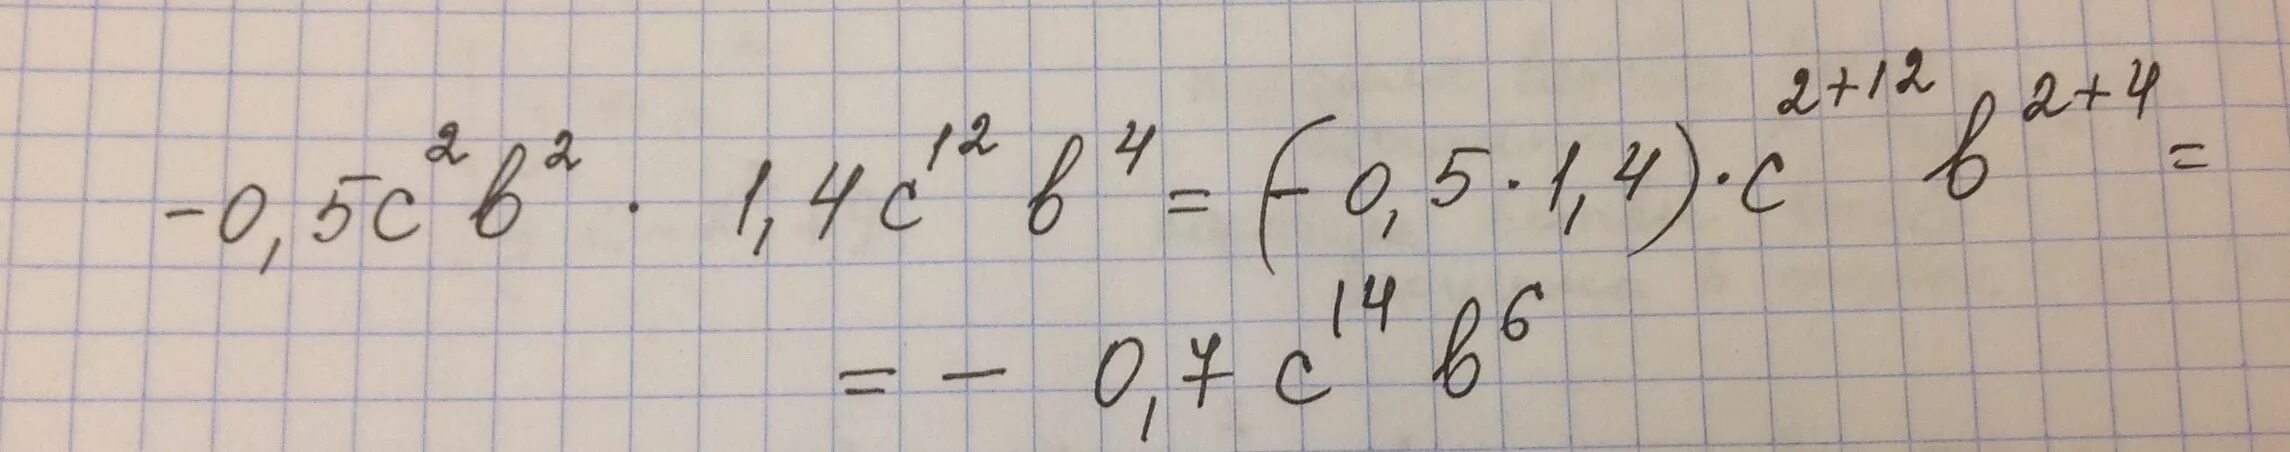 -0,5c²b² · 1,4c¹²b⁴ = (-0,5·1,4)·c²⁺¹² b²⁺⁴ =
= - 0,7 c¹⁴ b⁶